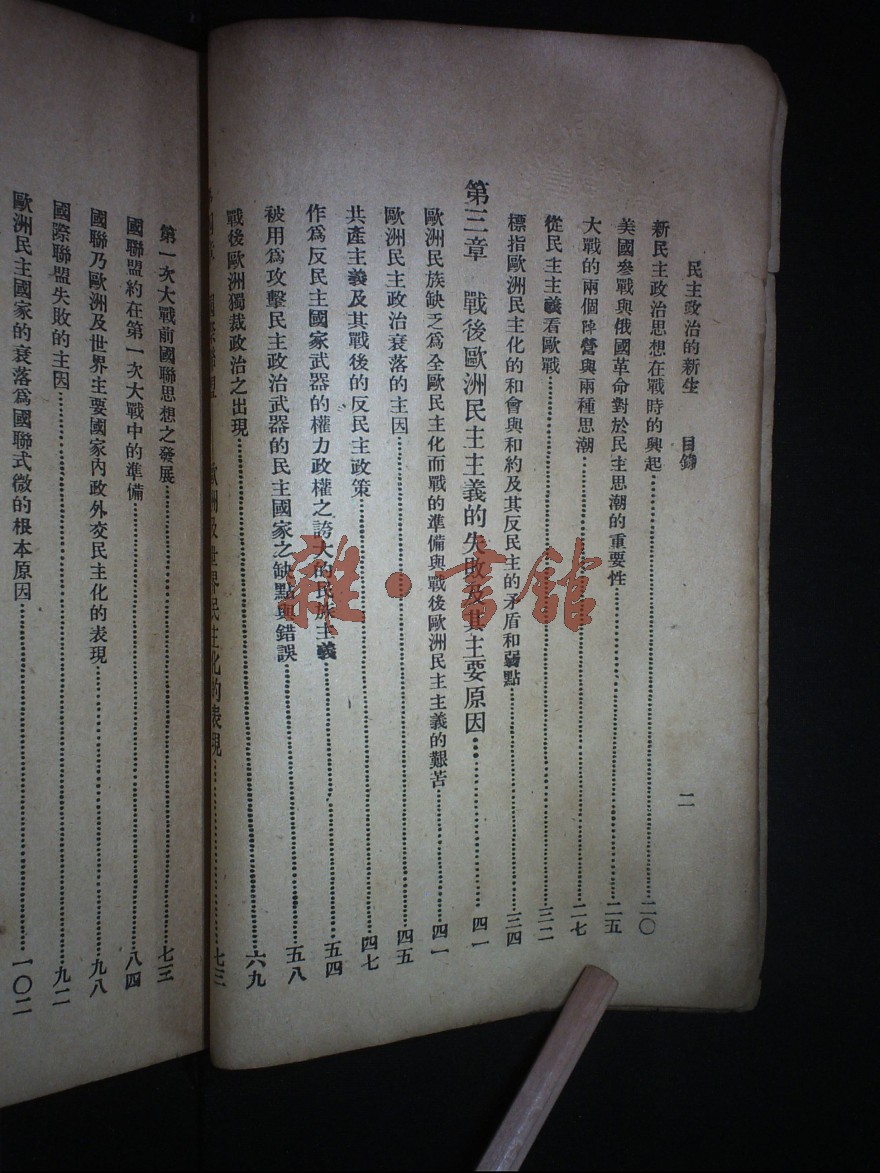 民主政治的新生 目錄 二
新民主政治思想在戰時的興起 二〇
美國參戰與俄國革命對於民主思潮的重要性 二五
大戰的兩個陣營與兩種思潮 二七
從民主主義看歐戰 三二
標指歐洲民主化的和會與和約及其反民主的矛盾和弱點 三四
第三章 戰後歐洲民主主義的失敗及其主要原因 四一
歐洲民族缺乏為全歐民主化而戰的準備與戰後歐洲民主主義的艱苦 四一
歐洲民主政治衰落的主因 四五
共產主義及其戰後的反民主政策 四七
作為反民主國家武器的權力政權之誇大的民族主義 五四
被用為攻擊民主政治武器的民主國家之缺點與錯誤 五八
戰後歐洲獨裁政治之出現 六九
國際聯盟 歐洲及世界民主化的表現 七三
第一次大戰前國聯思想之發展 七三
國聯盟約在第一次大戰中的準備 八四
國聯乃歐洲及世界主要國家內政外交民主化的表現 九八
國際聯盟失敗的主因 九二
歐洲民主國家的衰落為國聯式微的根本原因 一〇二
雜·書館